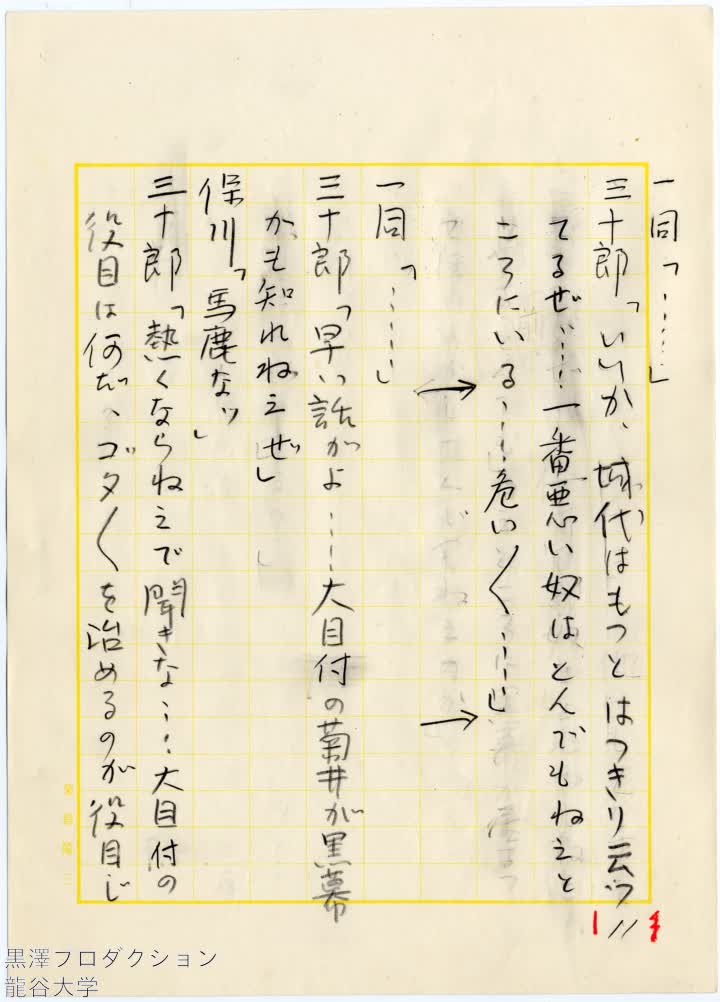 一同「……」
三十郎「いゝか、城代はもつとはつきり云つ
てるぜ……一番悪い奴はとんでもねえと
ころにいる……危い〱……」
一同「……」
三十郎「早い話がよ……大目付の菊井が黒幕
かも知れねえぜ」
保川「馬鹿なッ」
三十郎「熱くならねえで聞きな……大目付の
役目は何だ、ゴタ〱を治めるのが役目じ
黒澤プロダクション
龍谷大学